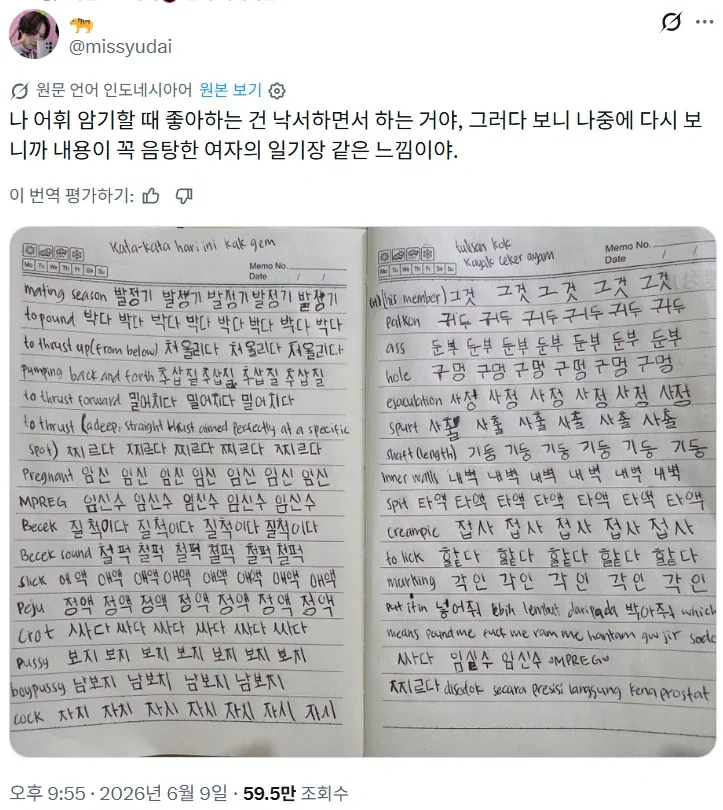 @missyudai
원문 언어 인도네시아어 원본 보기
나 어휘 암기할 때 좋아하는 건 낙서하면서 하는 거야, 그러다 보니 나중에 다시 보
니까 내용이 꼭 음탕한 여자의 일기장 같은 느낌이야.
이 번역 평가하기:
Kata-kata hari ini kak gem
Mo Tu We Th Fr Sa Su
Memo No.
Date / /
mating season 발정기 발정기 발정기 발정기 발정기
to pound 박다 박다 박다 박다 박다 박다 박다 박다
to thrust up (from below) 쳐올리다 쳐올리다 쳐올리다
pumping back and forth 추삽질 추삽질 추삽질 추삽질
to thrust forward 밀어치다 밀어치다 밀어치다
to thrust (a deep, straight thrust aimed perfectly at a specific
spot) 찌르다 찌르다 찌르다 찌르다 찌르다
Pregnant 임신 임신 임신 임신 임신 임신 임신
MPREG 임신수 임신수 임신수 임신수 임신수
Becek 질척이다 질척이다 질척이다 질척이다
Becek sound 철퍽 철퍽 철퍽 철퍽 철퍽 철퍽
slick 애액 애액 애액 애액 애액 애액 애액 애액
Peju 정액 정액 정액 정액 정액 정액 정액
Crot 싸다 싸다 싸다 싸다 싸다 싸다
pussy 보지 보지 보지 보지 보지 보지 보지
boypussy 남보지 남보지 남보지 남보지
cock 자지 자지 자지 자지 자지 자지 자지
tulisan kok
kayak ceker ayam
Mo Tu We Th Fr Sa Su
Memo No.
Date / /
(his member) 그것 그것 그것 그것 그것
palkon 귀두 귀두 귀두 귀두 귀두 귀두
ass 둔부 둔부 둔부 둔부 둔부 둔부 둔부
hole 구멍 구멍 구멍 구멍 구멍 구멍
ejaculation 사정 사정 사정 사정 사정 사정
spurt 사출 사출 사출 사출 사출 사출
shaft (length) 기둥 기둥 기둥 기둥 기둥 기둥
Inner walls 내벽 내벽 내벽 내벽 내벽 내벽
spit 타액 타액 타액 타액 타액 타액 타액
creampie 접사 접사 접사 접사 접사
to lick 핥다 핥다 핥다 핥다 핥다
marking 각인 각인 각인 각인 각인
Put it in 넣어줘 lebih lembut daripada 박아줘 which
means pound me fuck me ram me hantam gw jir
싸다 임신수 임신수 MPREG
찌르다 disodok secara presisi langsung kena prostat
오후 9:55 · 2026년 6월 9일 · 59.5만 조회수